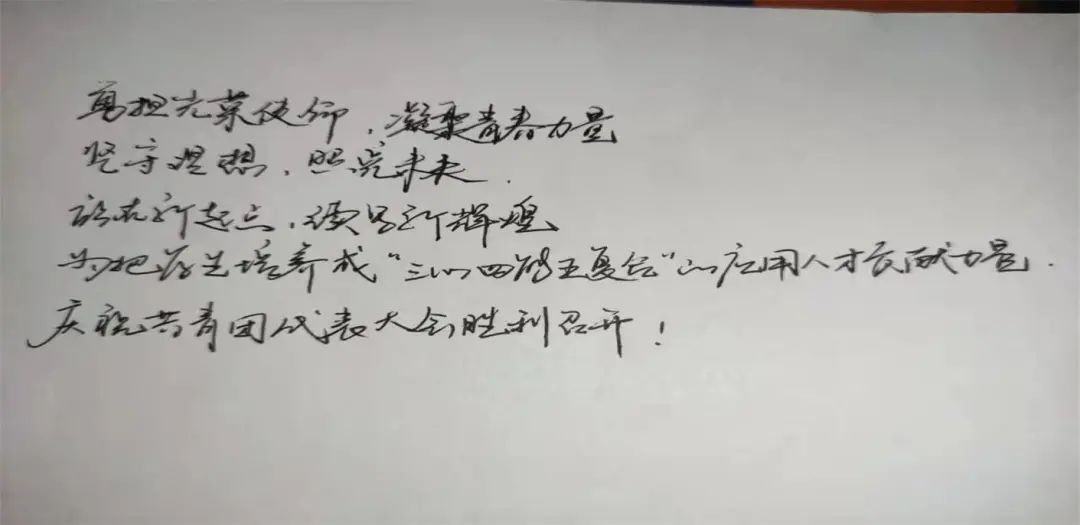 勇担光荣使命，凝聚青春力量
坚守理想，照亮未来.
站在新起点，谱写新辉煌
为把学生培养成“三心四能五复合”的应用人才贡献力量.
庆祝共青团代表大会胜利召开！